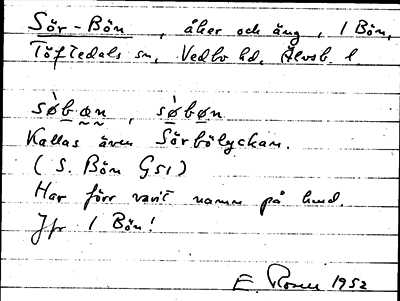 Sör-Bön, åker och äng, 1 Bön,
Töftedals sn, Vedbo hd, Älvsb. l
sø̀bøn, sø̀bøn
Kallas även Sörbölyckan.
(S. Bön Gs1)
Har förr varit namn på hmd.
Jfr 1 Bön!
E. Rosell 1952